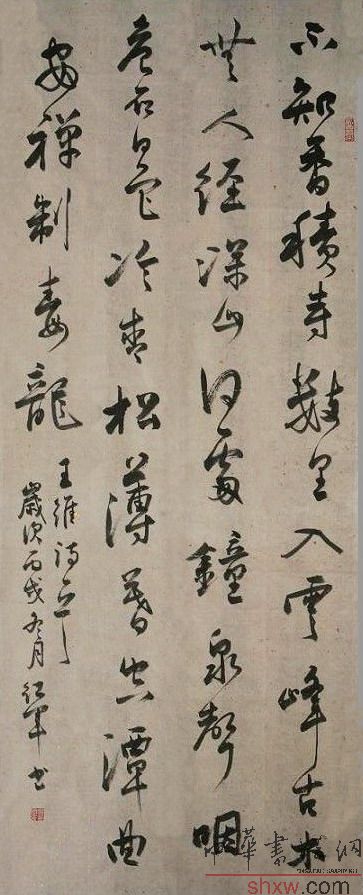 不知香積寺數里入雲峰古木
無人徑深山何處鐘泉聲咽
危石日色冷青松薄暮空潭曲
安禪制毒龍
王維詩
歲次丙戌冬月紅軍书
shxw.com